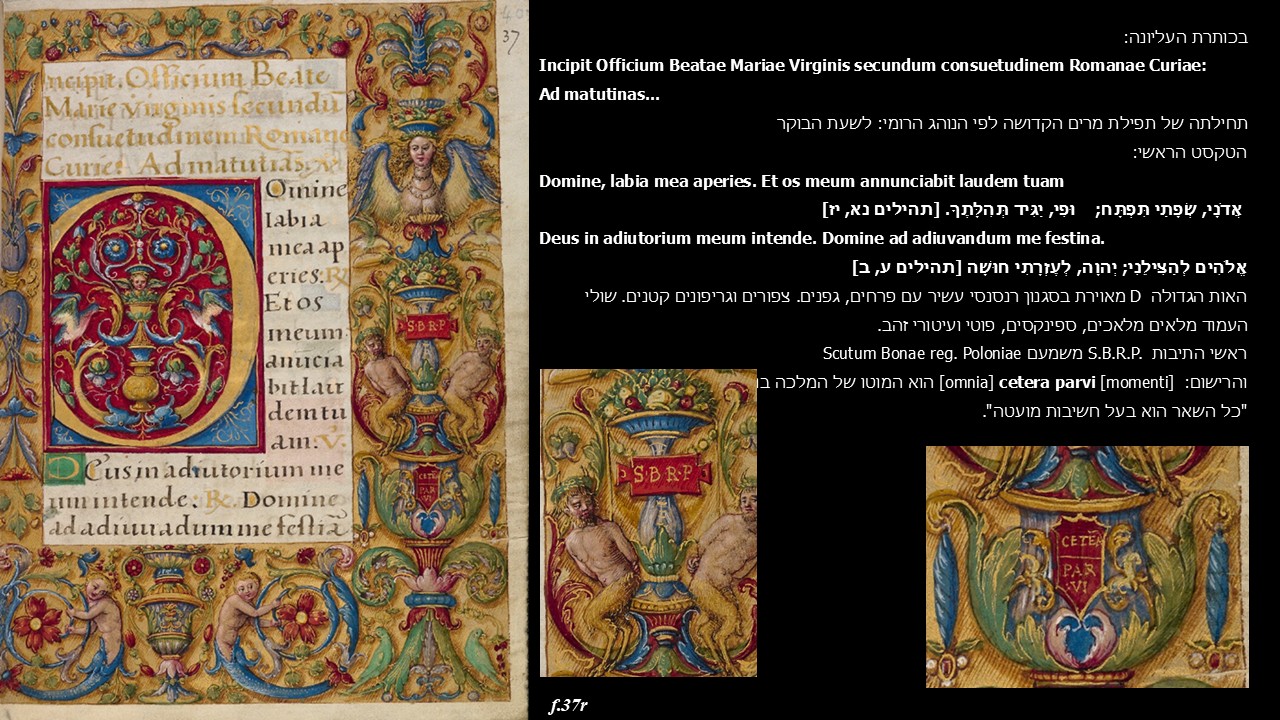 40
37
Incipit Officium Beate
Marie virginis secundū
consuetudinem Romane
Curie. Ad matutias. V.
Omine
labia
mea ap
eries: R
Et os
meum
anūcia
bit lau
dem tu
am: V.
Deus in adiutorium me
um intende: R. Domine
ad adiuuadum me festiā
S·B·R·P
CETE
PAR
VI
בכותרת העליונה:
Incipit Officium Beatae Mariae Virginis secundum consuetudinem Romanae Curiae:
Ad matutinas...
תחילתה של תפילת מרים הקדושה לפי הנוהג הרומי: לשעת הבוקר
הטקסט הראשי:
Domine, labia mea aperies. Et os meum annunciabit laudem tuam
אֲדֹנָי, שְׂפָתַי תִּפְתָּח; וּפִי, יַגִּיד תְּהִלָּתֶךָ. [תהילים נא, יז]
Deus in adiutorium meum intende. Domine ad adiuvandum me festina.
אֱלֹהִים לְהַצִּילֵנִי; יְהוָה, לְעֶזְרָתִי חוּשָׁה [תהילים ע, ב]
האות הגדולה D מאוירת בסגנון רנסנסי עשיר עם פרחים, גפנים. צפורים וגריפונים קטנים. שולי
העמוד מלאים מלאכים, ספינקסים, פוטי ועיטורי זהב.
ראשי התיבות S.B.R.P. משמעם Scutum Bonae reg. Poloniae
והרישום: [omnia] cetera parvi [momenti] הוא המוטו של המלכה
"כל השאר הוא בעל חשיבות מועטה".
S·B·R·P
CETER
PAR
VI
f.37r